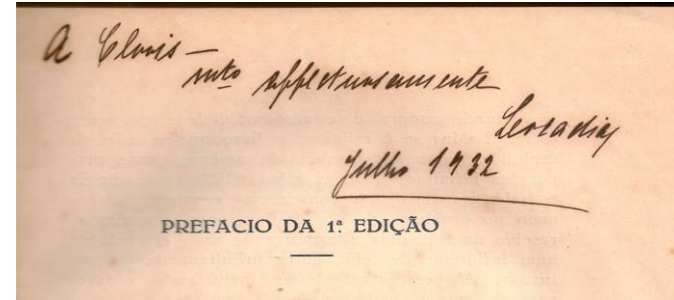 A Clovis —
mto affectuosamente
Leocadia
Julho 1932
PREFACIO DA 1ª EDIÇÃO